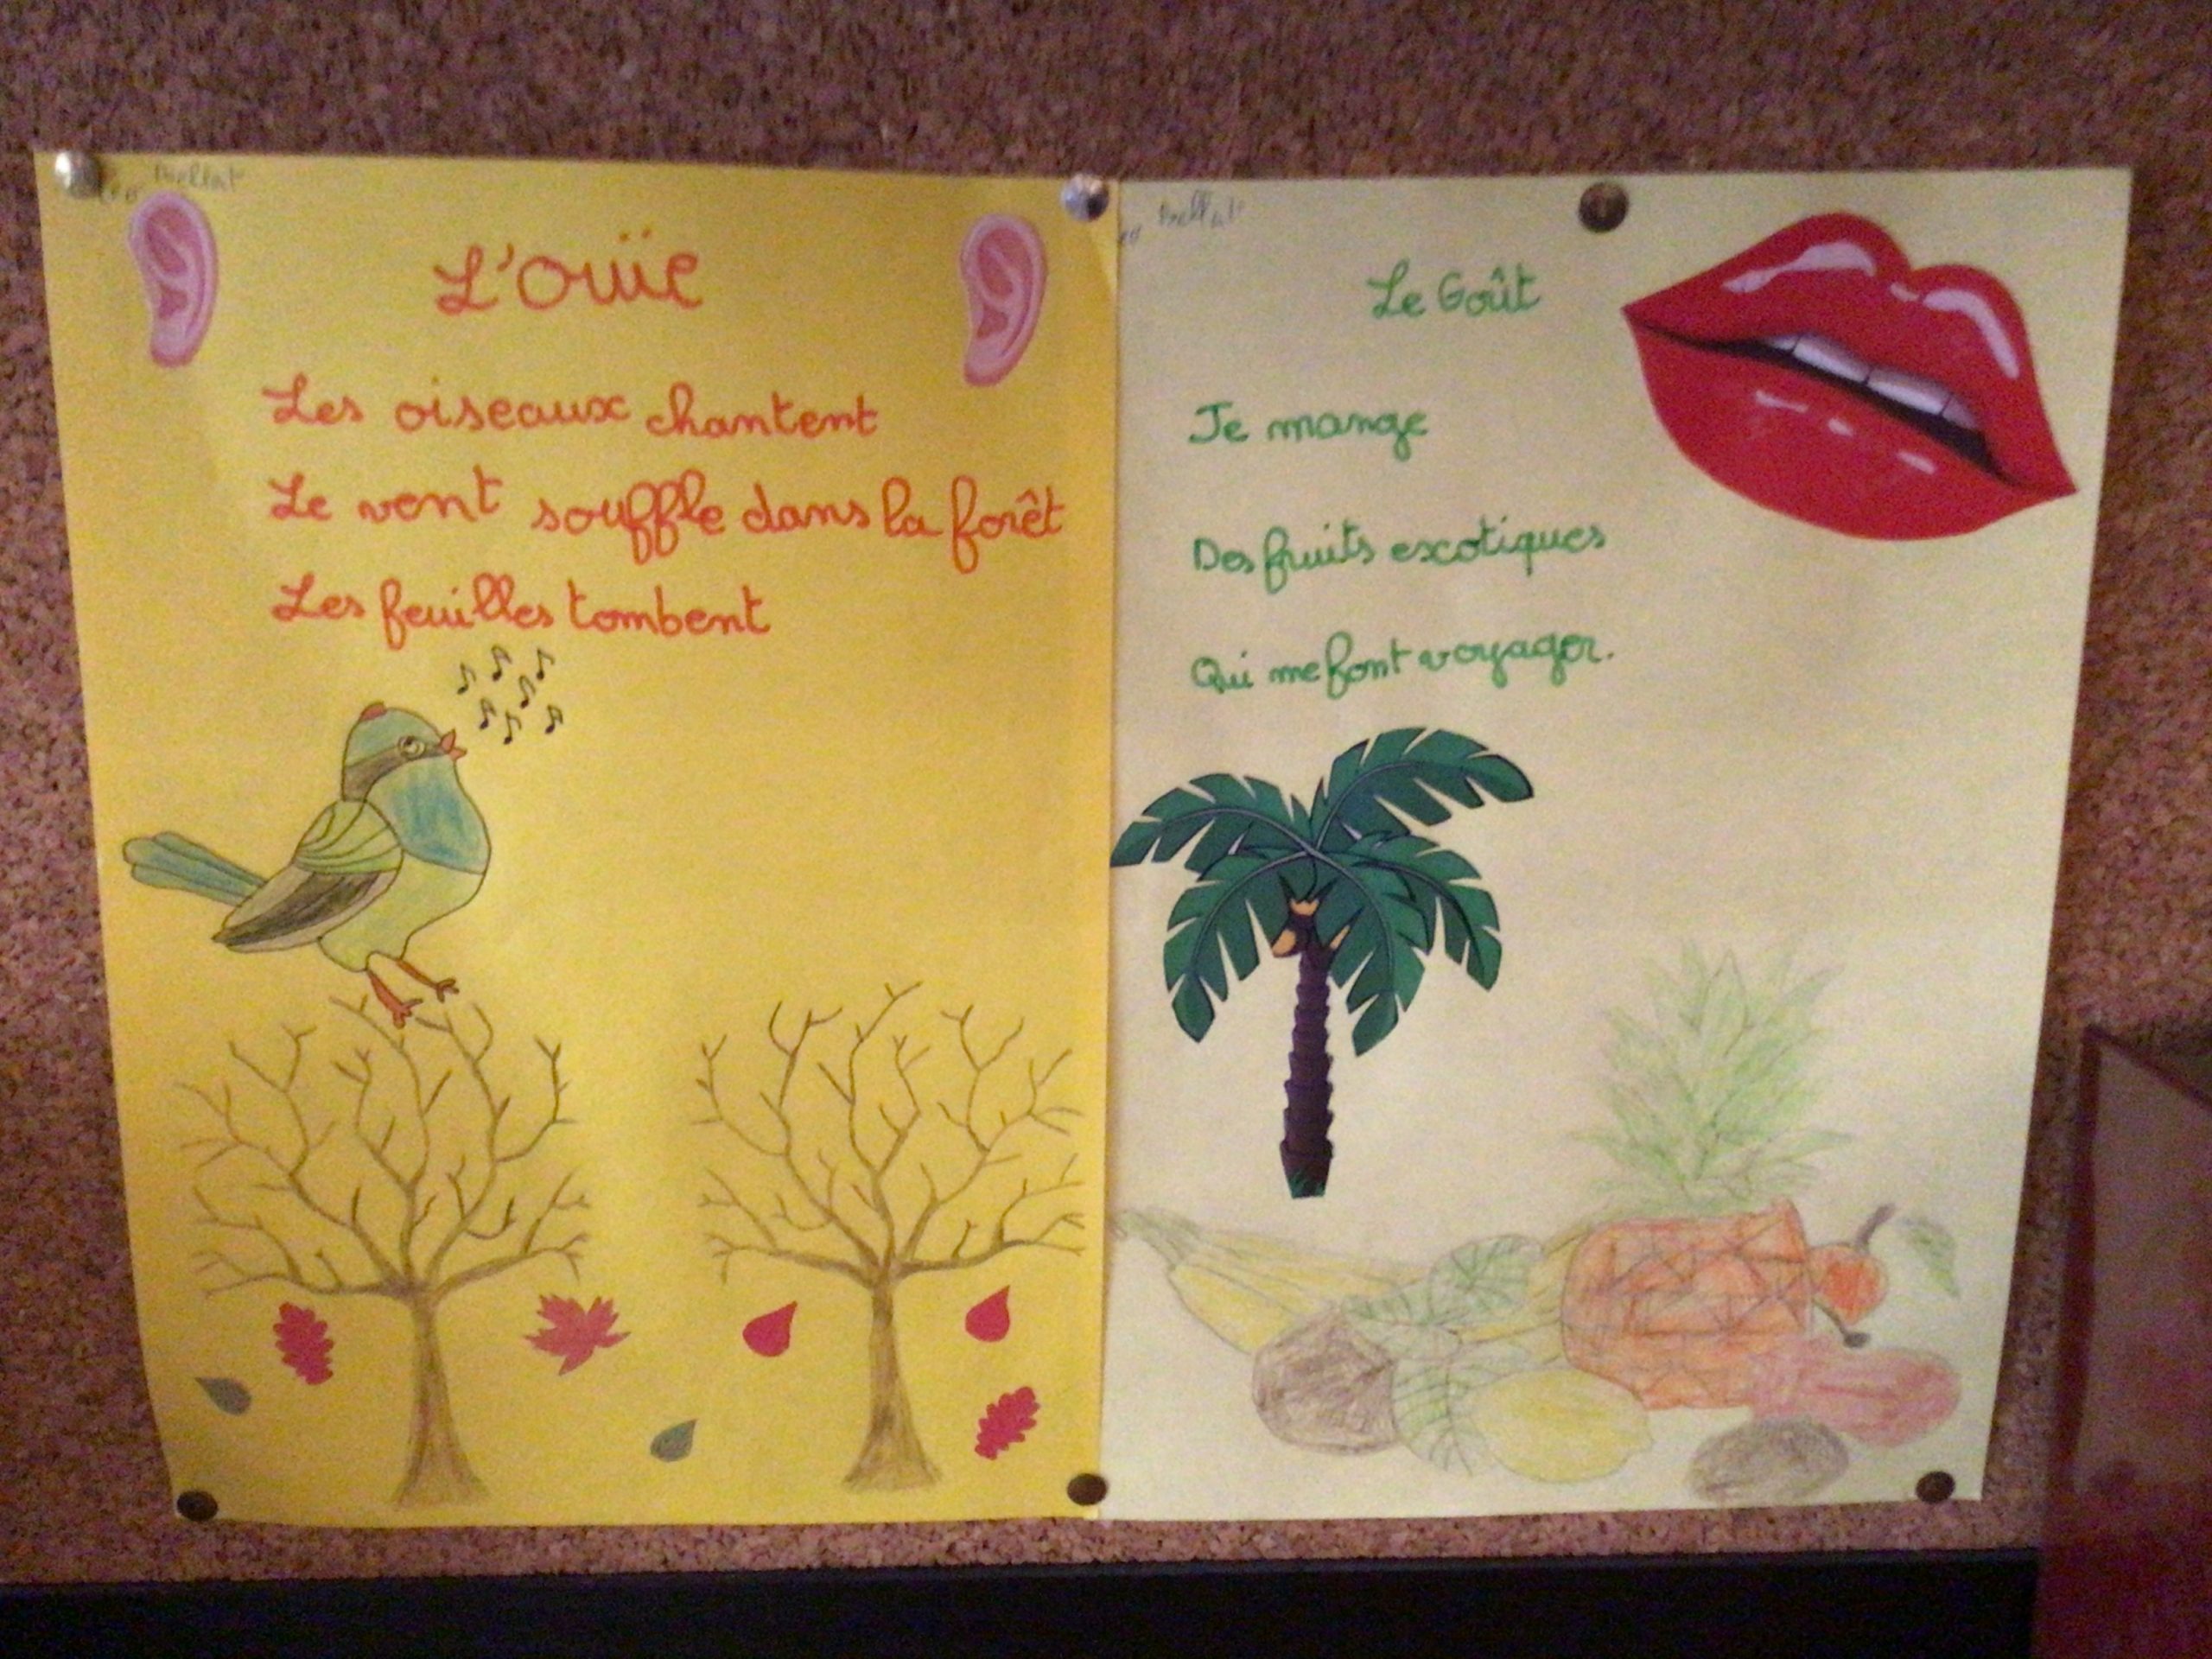 L'Ouïe
Les oiseaux chantent
Le vent souffle dans la forêt
Les feuilles tombent
Le Goût
Je mange
Des fruits exotiques
Qui me font voyager.